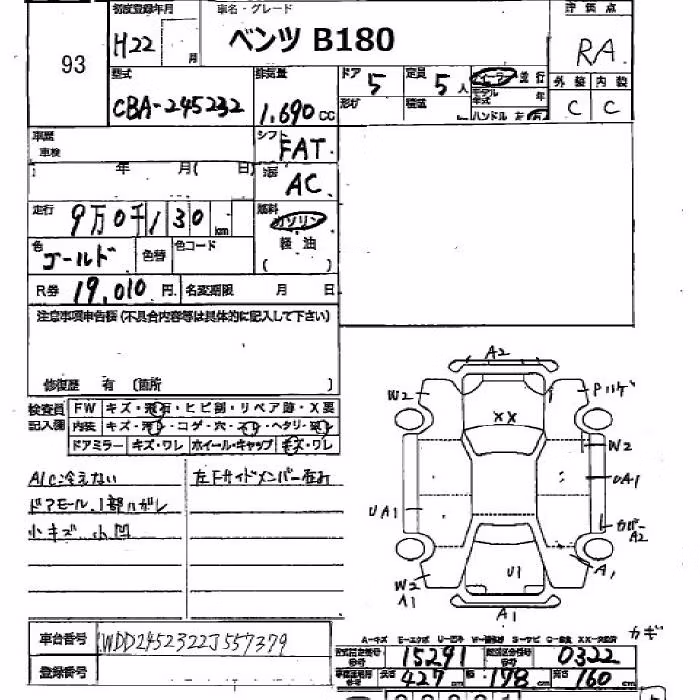 初度登録年月
車名・グレード
評価点
93
H22
月
ベンツ B180
RA
型式
排気量
ドア
定員
外装 内装
CBA-245232
1,690 cc
5
5 人
並行
形状
モデル年式 年
C C
ハンドル 左 右
車歴
車検
シフト
FAT
年 月( 日)
AC
走行
9万0千130 km
燃料
ガソリン
軽油
( )
色
ゴールド
色替
色コード
R券 19,010 円
名変期限 月 日
注意事項申告欄(不具合内容等は具体的に記入して下さい)
修復歴 有 〔箇所 〕
検査員記入欄
FW キズ・飛石・ヒビ割・リペア跡・X要
内装 キズ・汚れ・コゲ・穴・スレ・ヘタリ・
ドアミラー キズ・ワレ ホイール・キャップ キズ・ワレ
A/C冷えない
ドアモール1部ハガレ
小キズ 小凹
左Fサイドメンバー歪み
A2
W2
Pハゲ
XX
W2
UA1
UA1
カバー
A2
W2
A1
U1
A1
A1
カギ
車台番号 WDD2452322J557379
登録番号
A-キズ
15291
0322
長さ 427 cm 幅 178 cm 高さ 160 cm